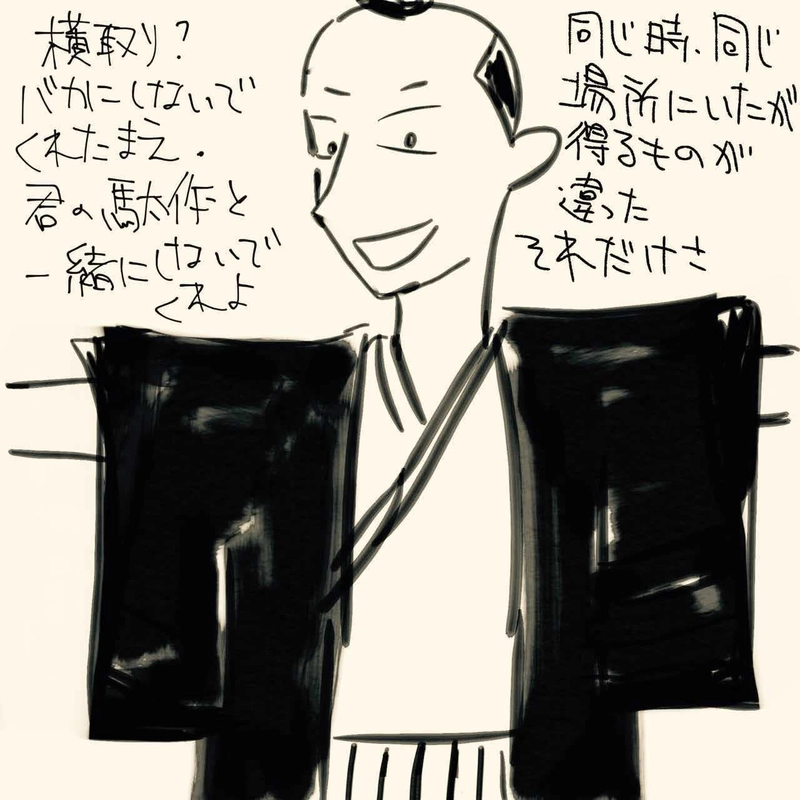 横取り？
バカにしないで
くれたまえ.
君の駄作と
一緒にしないで
くれよ
同じ時、同じ
場所にいたが
得るものが
違った
それだけさ